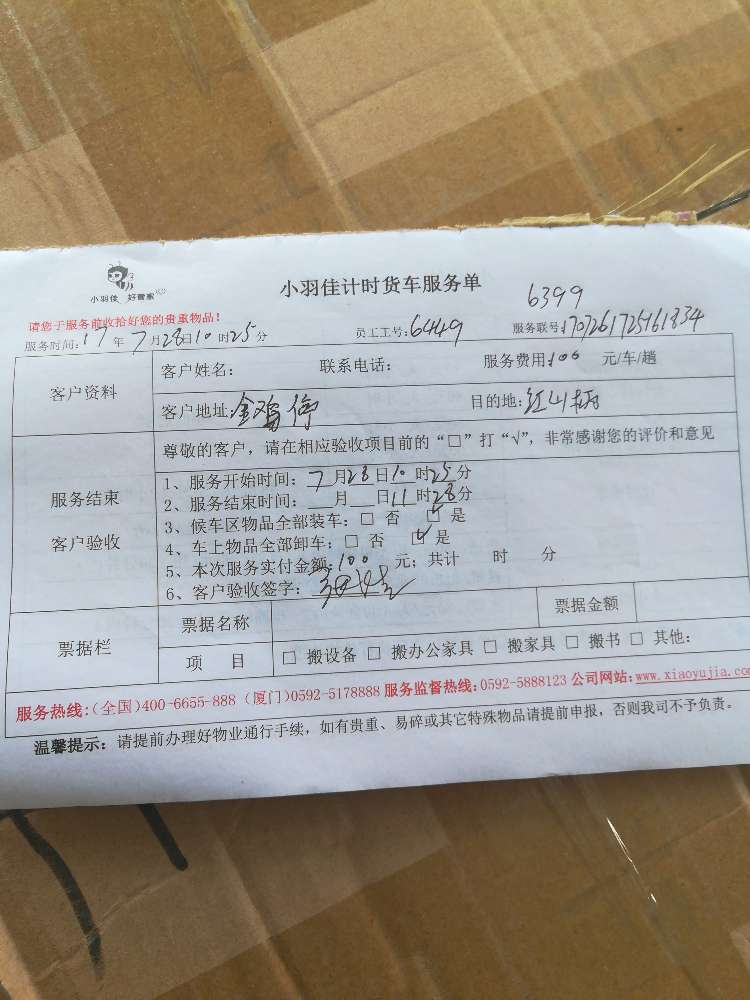 小羽佳 好管家
小羽佳计时货车服务单
6399
请您于服务前收拾好您的贵重物品!
服务时间:17年7月28日10时25分 员工工号:6449 服务联号:1707261725161834
客户资料
客户姓名: 联系电话: 服务费用:100 元/车/趟
客户地址:金鸡亭 目的地:红山
服务结束
客户验收
尊敬的客户,请在相应验收项目前的“□”打“√”,非常感谢您的评价和意见
1、服务开始时间:7月28日10时25分
2、服务结束时间:__月__日11时28分
3、候车区物品全部装车:□ 否 ☑ 是
4、车上物品全部卸车:□ 否 ☑ 是
5、本次服务实付金额:100 元;共计 时 分
6、客户验收签字:
票据栏
票据名称 票据金额
项 目 □ 搬设备 □ 搬办公家具 □ 搬家具 □ 搬书 □ 其他:
服务热线:(全国)400-6655-888 (厦门)0592-5178888 服务监督热线:0592-5888123 公司网站:www.xiaoyujia.co
温馨提示:请提前办理好物业通行手续,如有贵重、易碎或其它特殊物品请提前申报,否则我司不予负责。